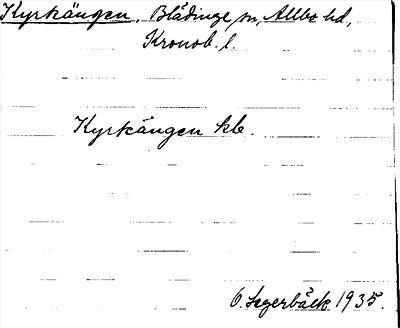 Kyrkängen, Blädinge sn, Allbo hd,
Kronob. l.
Kyrkängen kle.
O. Lagerbäck 1935.